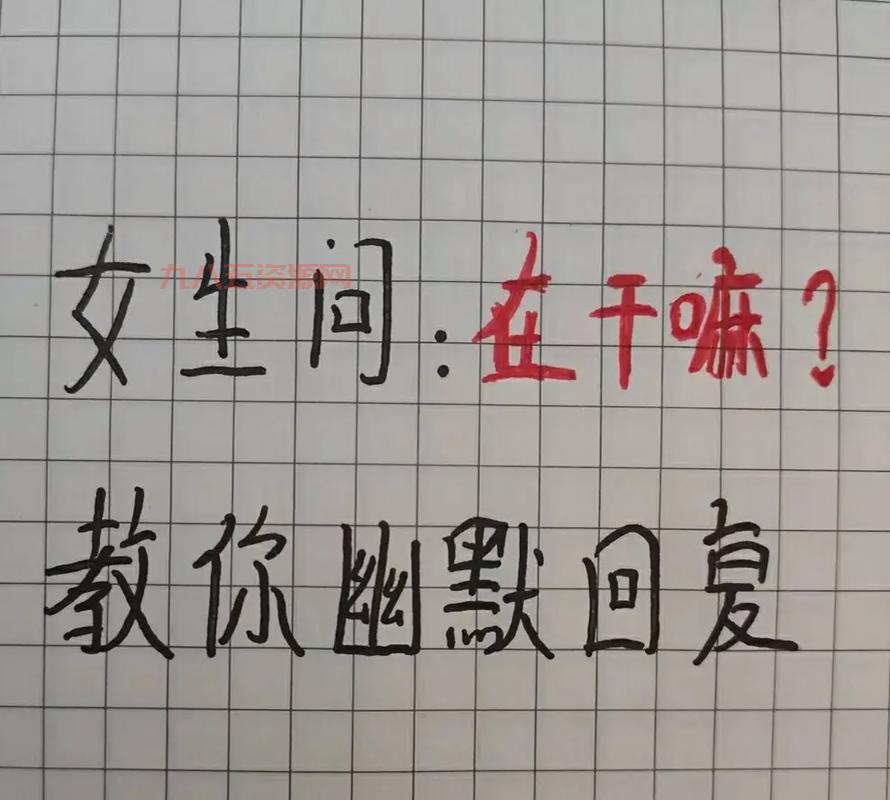 女生问:在干嘛?
九八五资源网
教你幽默回复